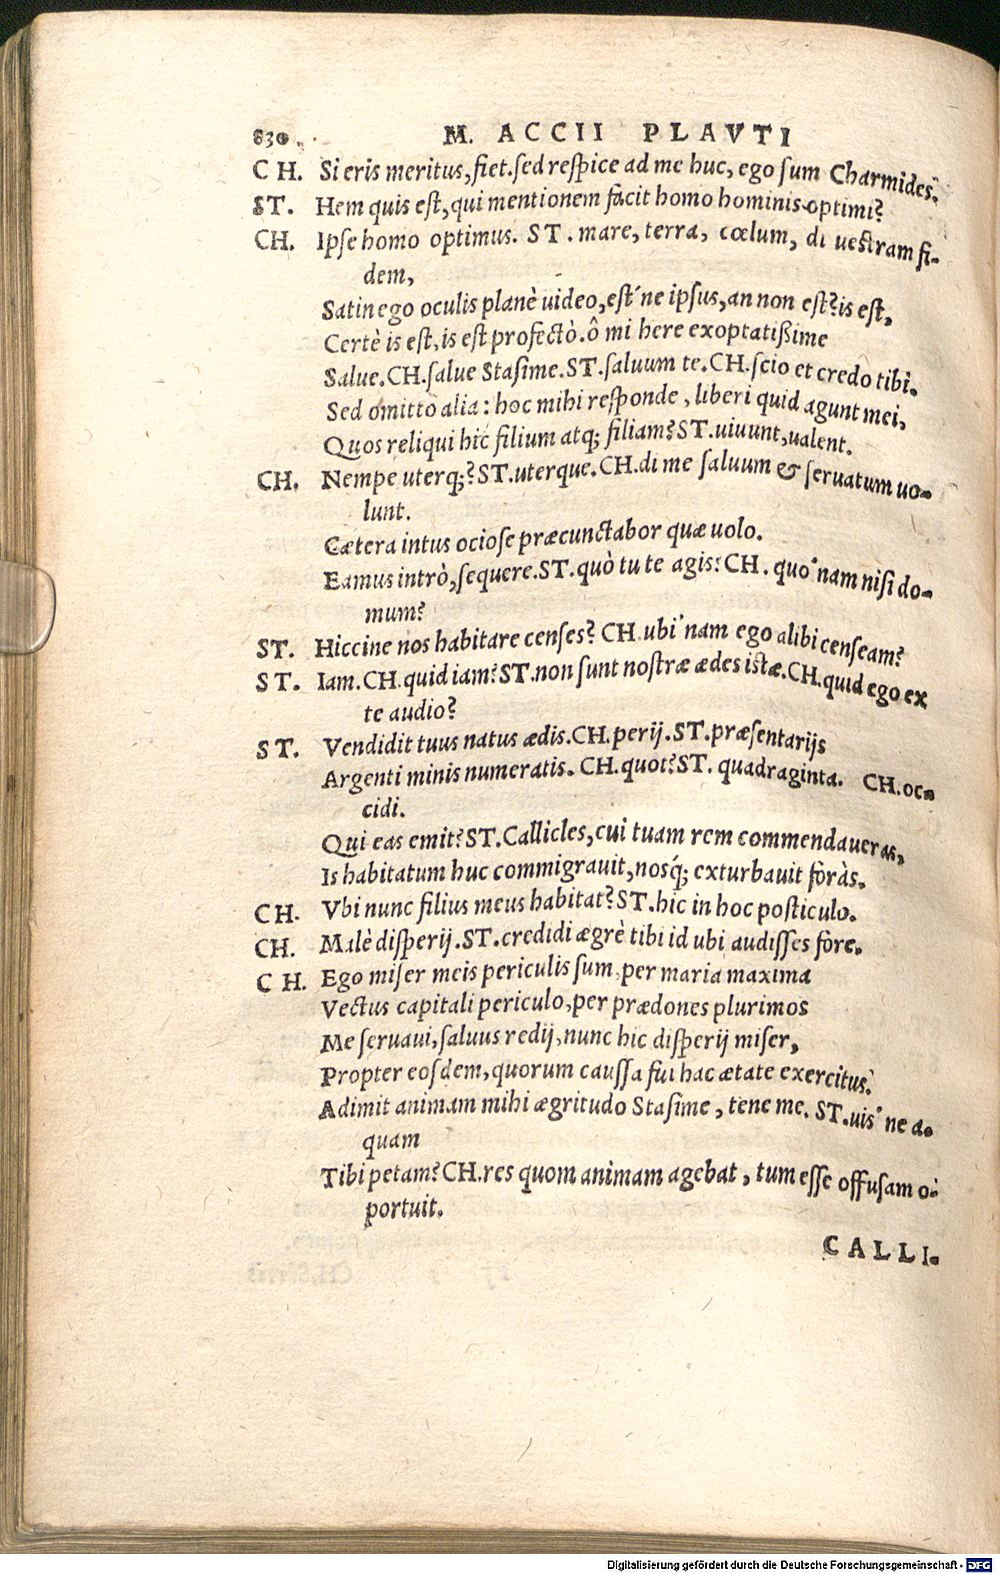 830 M. ACCII PLAVTI
CH. Si eris meritus, fiet. sed respice ad me huc, ego sum Charmides.
ST. Hem quis est, qui mentionem facit homo hominis optimi?
CH. Ipse homo optimus. ST. mare, terra, cœlum, di uestram fi-
dem,
Satin ego oculis planè uideo, est´ne ipsus, an non est? is est,
Certè is est, is est profectò. ô mi here exoptatißime
Salue. CH. salue Stasime. ST. saluum te. CH. scio et credo tibi.
Sed omitto alia: hoc mihi responde, liberi quid agunt mei,
Quos reliqui hic filium atq; filiam? ST. uiuunt, ualent.
CH. Nempe uterq;? ST. uterque. CH. di me saluum & seruatum uo-
lunt.
Cætera intus ociose præcunctabor quæ uolo.
Eamus intrò, sequere. ST. quò tu te agis? CH. quo´nam nisi do-
mum?
ST. Hiccine nos habitare censes? CH. ubi´nam ego alibi censeam?
ST. Iam. CH. quid iam? ST. non sunt nostræ ædes istæ. CH. quid ego ex
te audio?
ST. Vendidit tuus natus ædis. CH. perij. ST. præsentarijs
Argenti minis numeratis. CH. quot? ST. quadraginta. CH. oc-
cidi.
Qui eas emit? ST. Callicles, cui tuam rem commendaueras,
Is habitatum huc commigrauit, nosq́; exturbauit foràs.
CH. Vbi nunc filius meus habitat? ST. hic in hoc posticulo.
CH. Malè disperij. ST. credidi ægrè tibi id ubi audisses fore.
CH. Ego miser meis periculis sum per maria maxima
Vectus capitali periculo, per prædones plurimos
Me seruaui, saluus redij, nunc hic disperij miser,
Propter eosdem, quorum caussa fui hac ætate exercitus.
Adimit animam mihi ægritudo Stasime, tene me. ST. uis´ne a-
quam
Tibi petam? CH. res quom animam agebat, tum esse offusam o-
portuit.
CALLI-
Digitalisierung gefördert durch die Deutsche Forschungsgemeinschaft - DFG